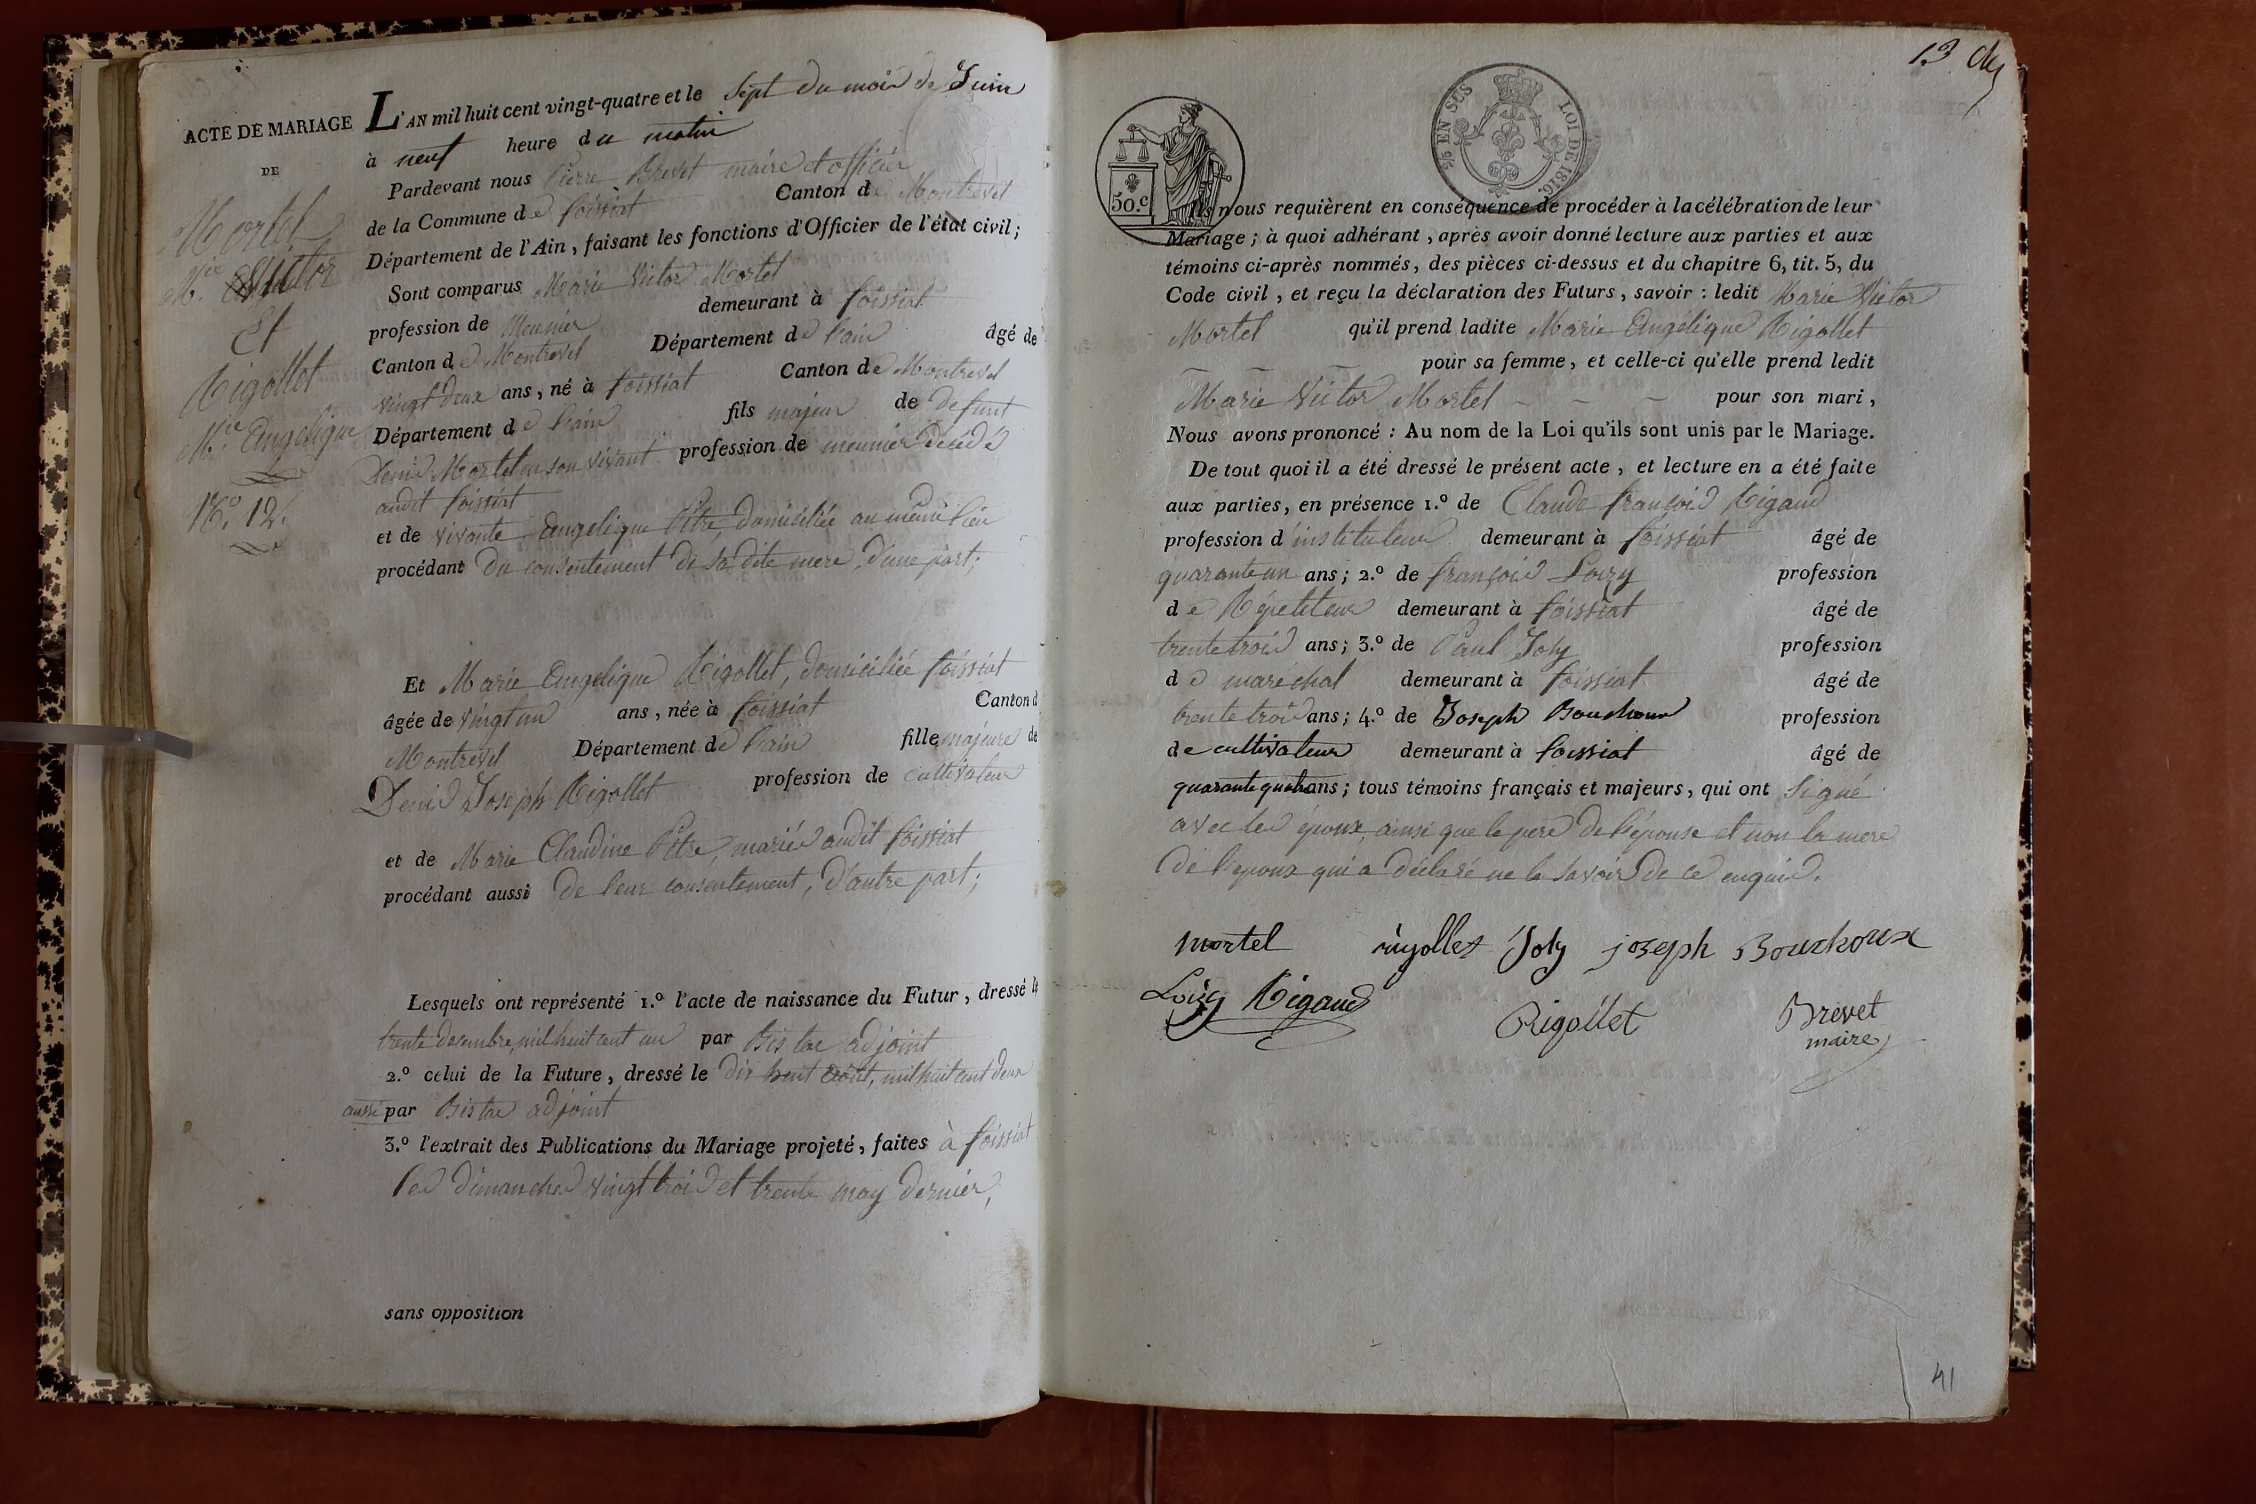 ACTE DE MARIAGE
DE
Mortel
M.ie Victor
Et
Rigollet
M.ie Angelique
N.o 12.
L'AN mil huit cent vingt-quatre et le Sept du mois de Juin
à neuf heure du matin
Pardevant nous Pierre Brevet maire et officier
de la Commune de foissiat Canton de Montrevel
Département de l'Ain, faisant les fonctions d'Officier de l'état civil;
Sont comparus Marie Victor Mortel
profession de Meunier demeurant à foissiat
Canton de Montrevel Département de l'ain âgé de
vingt deux ans, né à foissiat Canton de Montrevel
Département de l'ain fils majeur de defunt
Denis Mortel en son vivant profession de meunier décédé
audit foissiat
et de vivante Angelique Pitre, domiciliée au même lieu
procédant du consentement de sa dite mere, d'une part;
Et Marie Angelique Rigollet, domiciliée foissiat
âgée de vingt un ans, née à foissiat Canton d
Montrevel Département de l'ain fille majeure de
Denis Joseph Rigollet profession de cultivateur
et de Marie Claudine Pitre, mariés audit foissiat
procédant aussi de leur consentement, d'autre part;
Lesquels ont représenté 1.º l'acte de naissance du Futur, dressé le
trente decembre, mil huit cent un par Bistac adjoint
2.º celui de la Future, dressé le dix huit août, mil huit cent deux
aussi par Bistac adjoint
3.º l'extrait des Publications du Mariage projeté, faites à foissiat
les dimanches vingt trois et trente may dernier,
sans opposition
13
50.c
EN SUS
LOI DE 1816.
Ils nous requièrent en conséquence de procéder à la célébration de leur
Mariage; à quoi adhérant, après avoir donné lecture aux parties et aux
témoins ci-après nommés, des pièces ci-dessus et du chapitre 6, tit. 5, du
Code civil, et reçu la déclaration des Futurs, savoir: ledit Marie Victor
Mortel qu'il prend ladite Marie Angélique Rigollet
– – – pour sa femme, et celle-ci qu'elle prend ledit
Marie Victor Mortel – – – pour son mari,
Nous avons prononcé: Au nom de la Loi qu'ils sont unis par le Mariage.
De tout quoi il a été dressé le présent acte, et lecture en a été faite
aux parties, en présence 1.º de Claude françois Rigaud
profession d'instituteur demeurant à foissiat âgé de
quarante un ans; 2.º de françois Loizy profession
de Répetiteur demeurant à foissiat âgé de
trente trois ans; 3.º de Paul Joly profession
de maréchal demeurant à foissiat âgé de
trente trois ans; 4.º de Joseph Bouchoux profession
de cultivateur demeurant à foissiat âgé de
quarante quatre ans; tous témoins français et majeurs, qui ont signé
avec les époux, ainsi que le pere de l'épouse et non la mere
de l'epoux qui a déclaré ne le savoir de ce enquis.
mortel rigollet Joly joseph Bouchoux
Loizy Rigaud Rigollet Brevet
maire
41